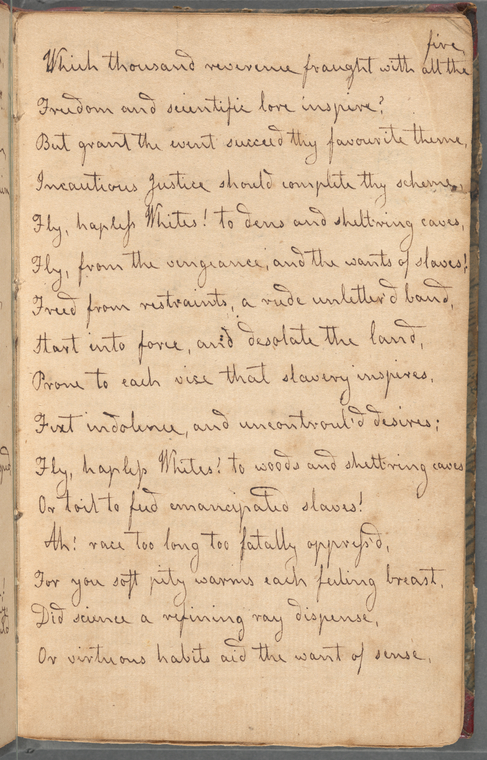 fire,
Which thousand reverence fraught with all the
Freedom and scientific lore inspire?
But grant the event succeed thy favourite theme,
Incautious Justice should complete thy scheme,
Fly, hapless Whites! to dens and shelt'ring caves,
Fly, from the vengeance, and the wants of slaves!
Freed from restraints, a rude unletter'd band,
Start into force, and desolate the land,
Prone to each vice that slavery inspires,
Fixt indolence, and uncontroul'd desires;
Fly, hapless Whites! to woods and shelt'ring caves
Or toil to feed emancipated slaves!
Ah! race too long too fatally oppress'd,
For you soft pity warms each feeling breast,
Did science a refining ray dispense,
Or virtuous habits aid the want of sense,